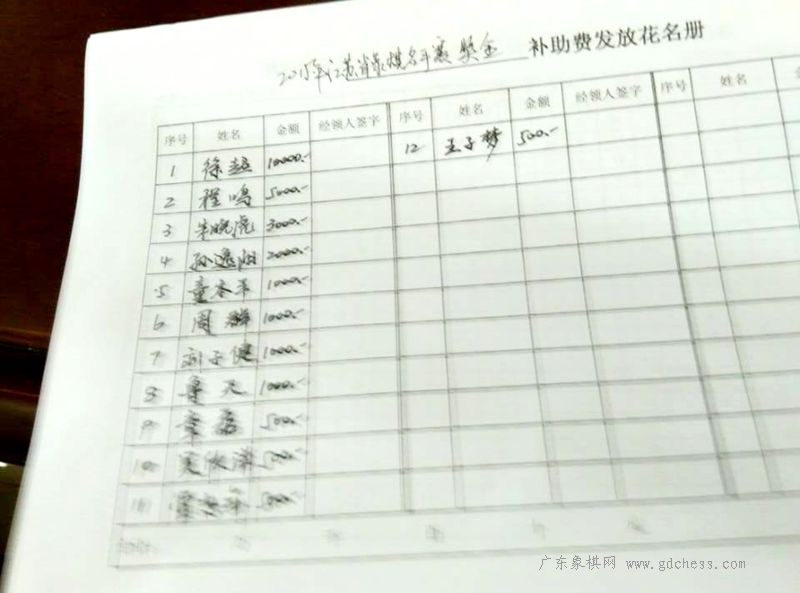 2015年江苏省象棋名手赛奖金 补助费发放花名册
序号 姓名 金额 经领人签字 序号 姓名 金额 经领人签字 序号 姓名
1 徐超 10000.- 12 王子梦 500.-
2 程鸣 5000.-
3 朱晓虎 3000.-
4 孙逸阳 2000.-
5 童本平 1000.-
6 周群 1000.-
7 刘子健 1000.-
8 鲁天 1000.-
9 500.-
10 500.-
11 500.-
广东象棋网 www.gdchess.com